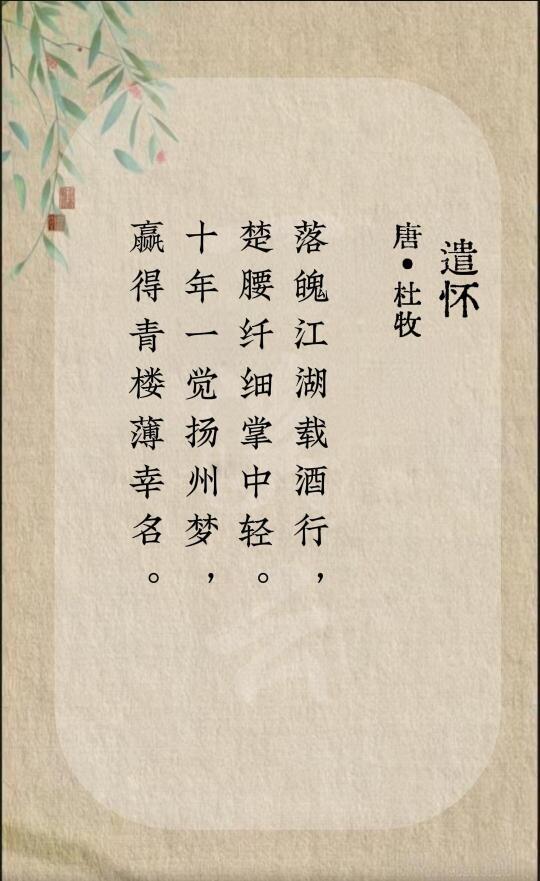 遣怀
唐·杜牧
落魄江湖载酒行，
楚腰纤细掌中轻。
十年一觉扬州梦，
赢得青楼薄幸名。